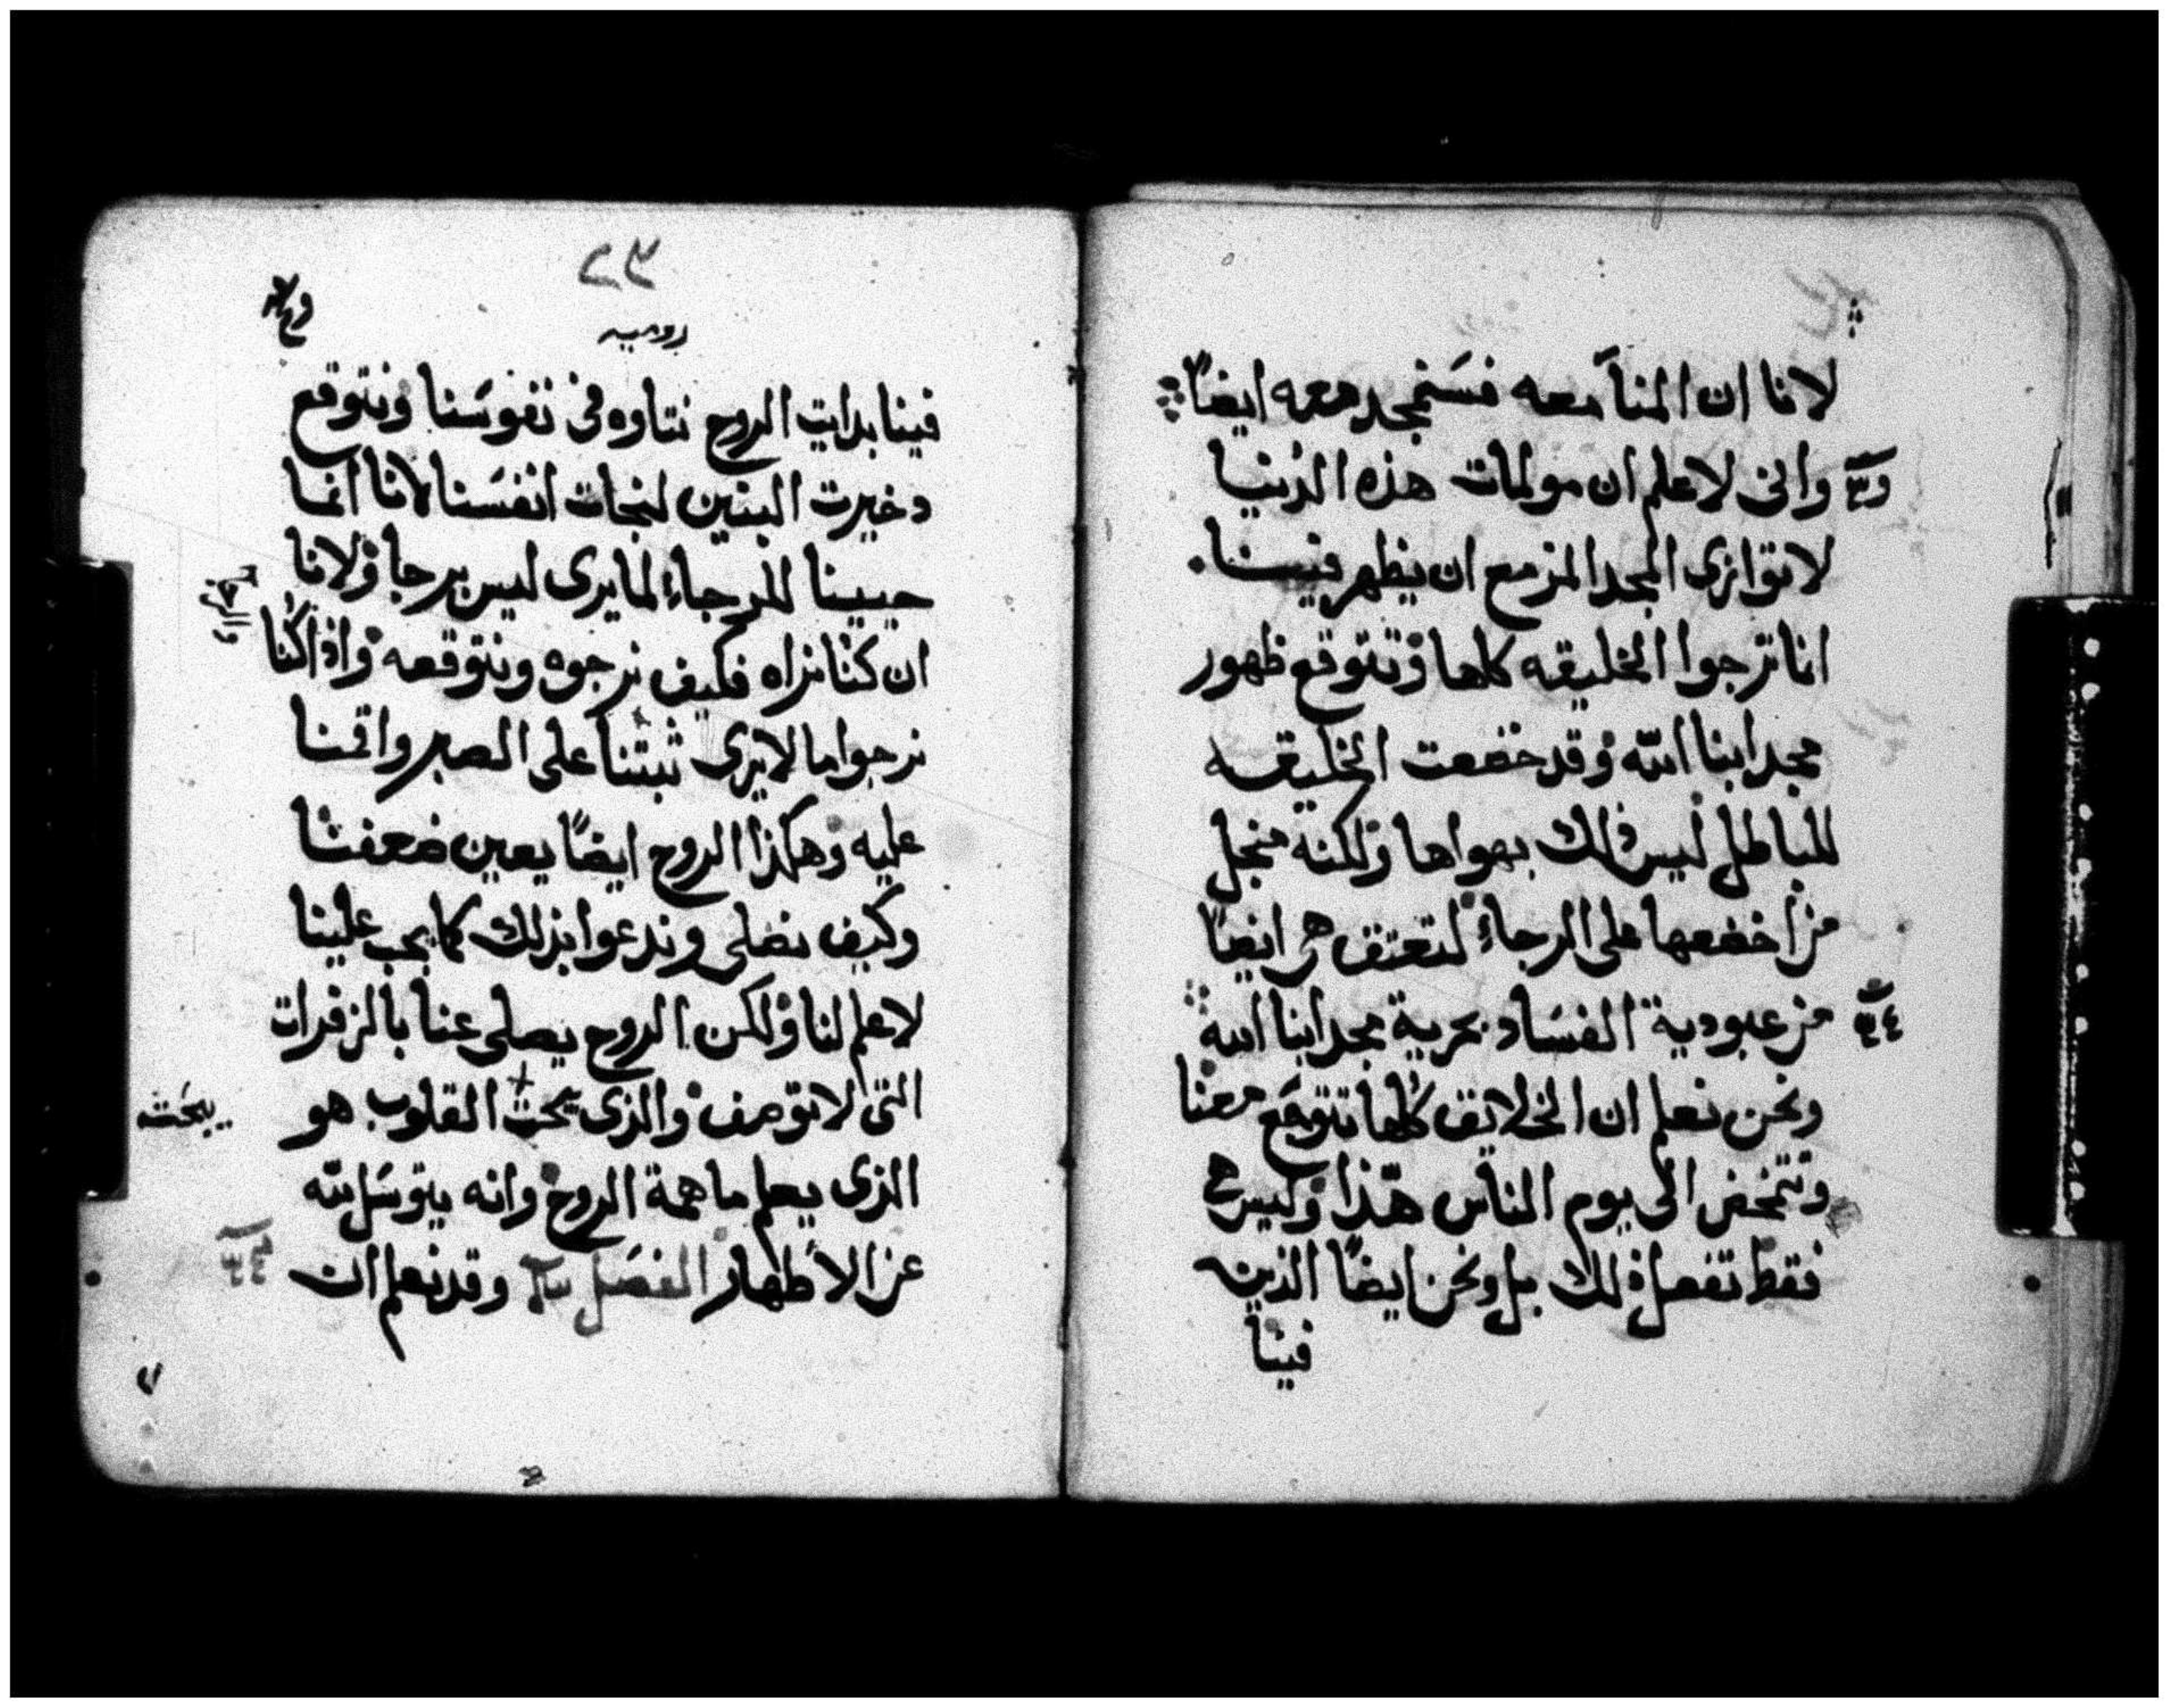 لانا ان المنا معه فسنمجد معه ايضا
وانى لاعلم ان مولمات هذه الدنيا
لاتوازى المجد المزمع ان يظهر فينا
انما ترجوا الخليقه كلها وتتوقع ظهور
مجد ابنا الله وقد خضعت الخليقه
للباطل ليس ذلك بهواها ولكنه منجل
من اخضعها على الرجاء لتعتق هى ايضا
من عبودية الفساد بحرية مجد ابنا الله
ونحن نعلم ان الخلايق كلها تتوجع معنا
وتتمخض الى يوم الناس هذا وليس هى
فقط تفعل ذلك بل ونحن ايضا الذين
فينا
روميه
فينا بدايت الروح نتاوه فى نفوسنا ونتوقع
دخيرت البنين لنجات انفسنا لانا انما
حيينا للرجاء لما يرى ليس برجا ولانا
ان كنا نراه فكيف نرجوه ونتوقعه واذا كنا
نرجوا ما لايرى ثبتنا على الصبر واقمنا
عليه وهكذا الروح ايضا يعين ضعفنا
وكيف نصلى وندعوا بذلك كما يجب علينا
لاعلم لنا ولكن الروح يصلى عنا بالزفرات
التى لاتوصف والذى يحت القلوب هو
يبحت
الذى يعلم ما همة الروح وانه يتوسل لله
عن الاطهار الفصل وقد نعلم ان